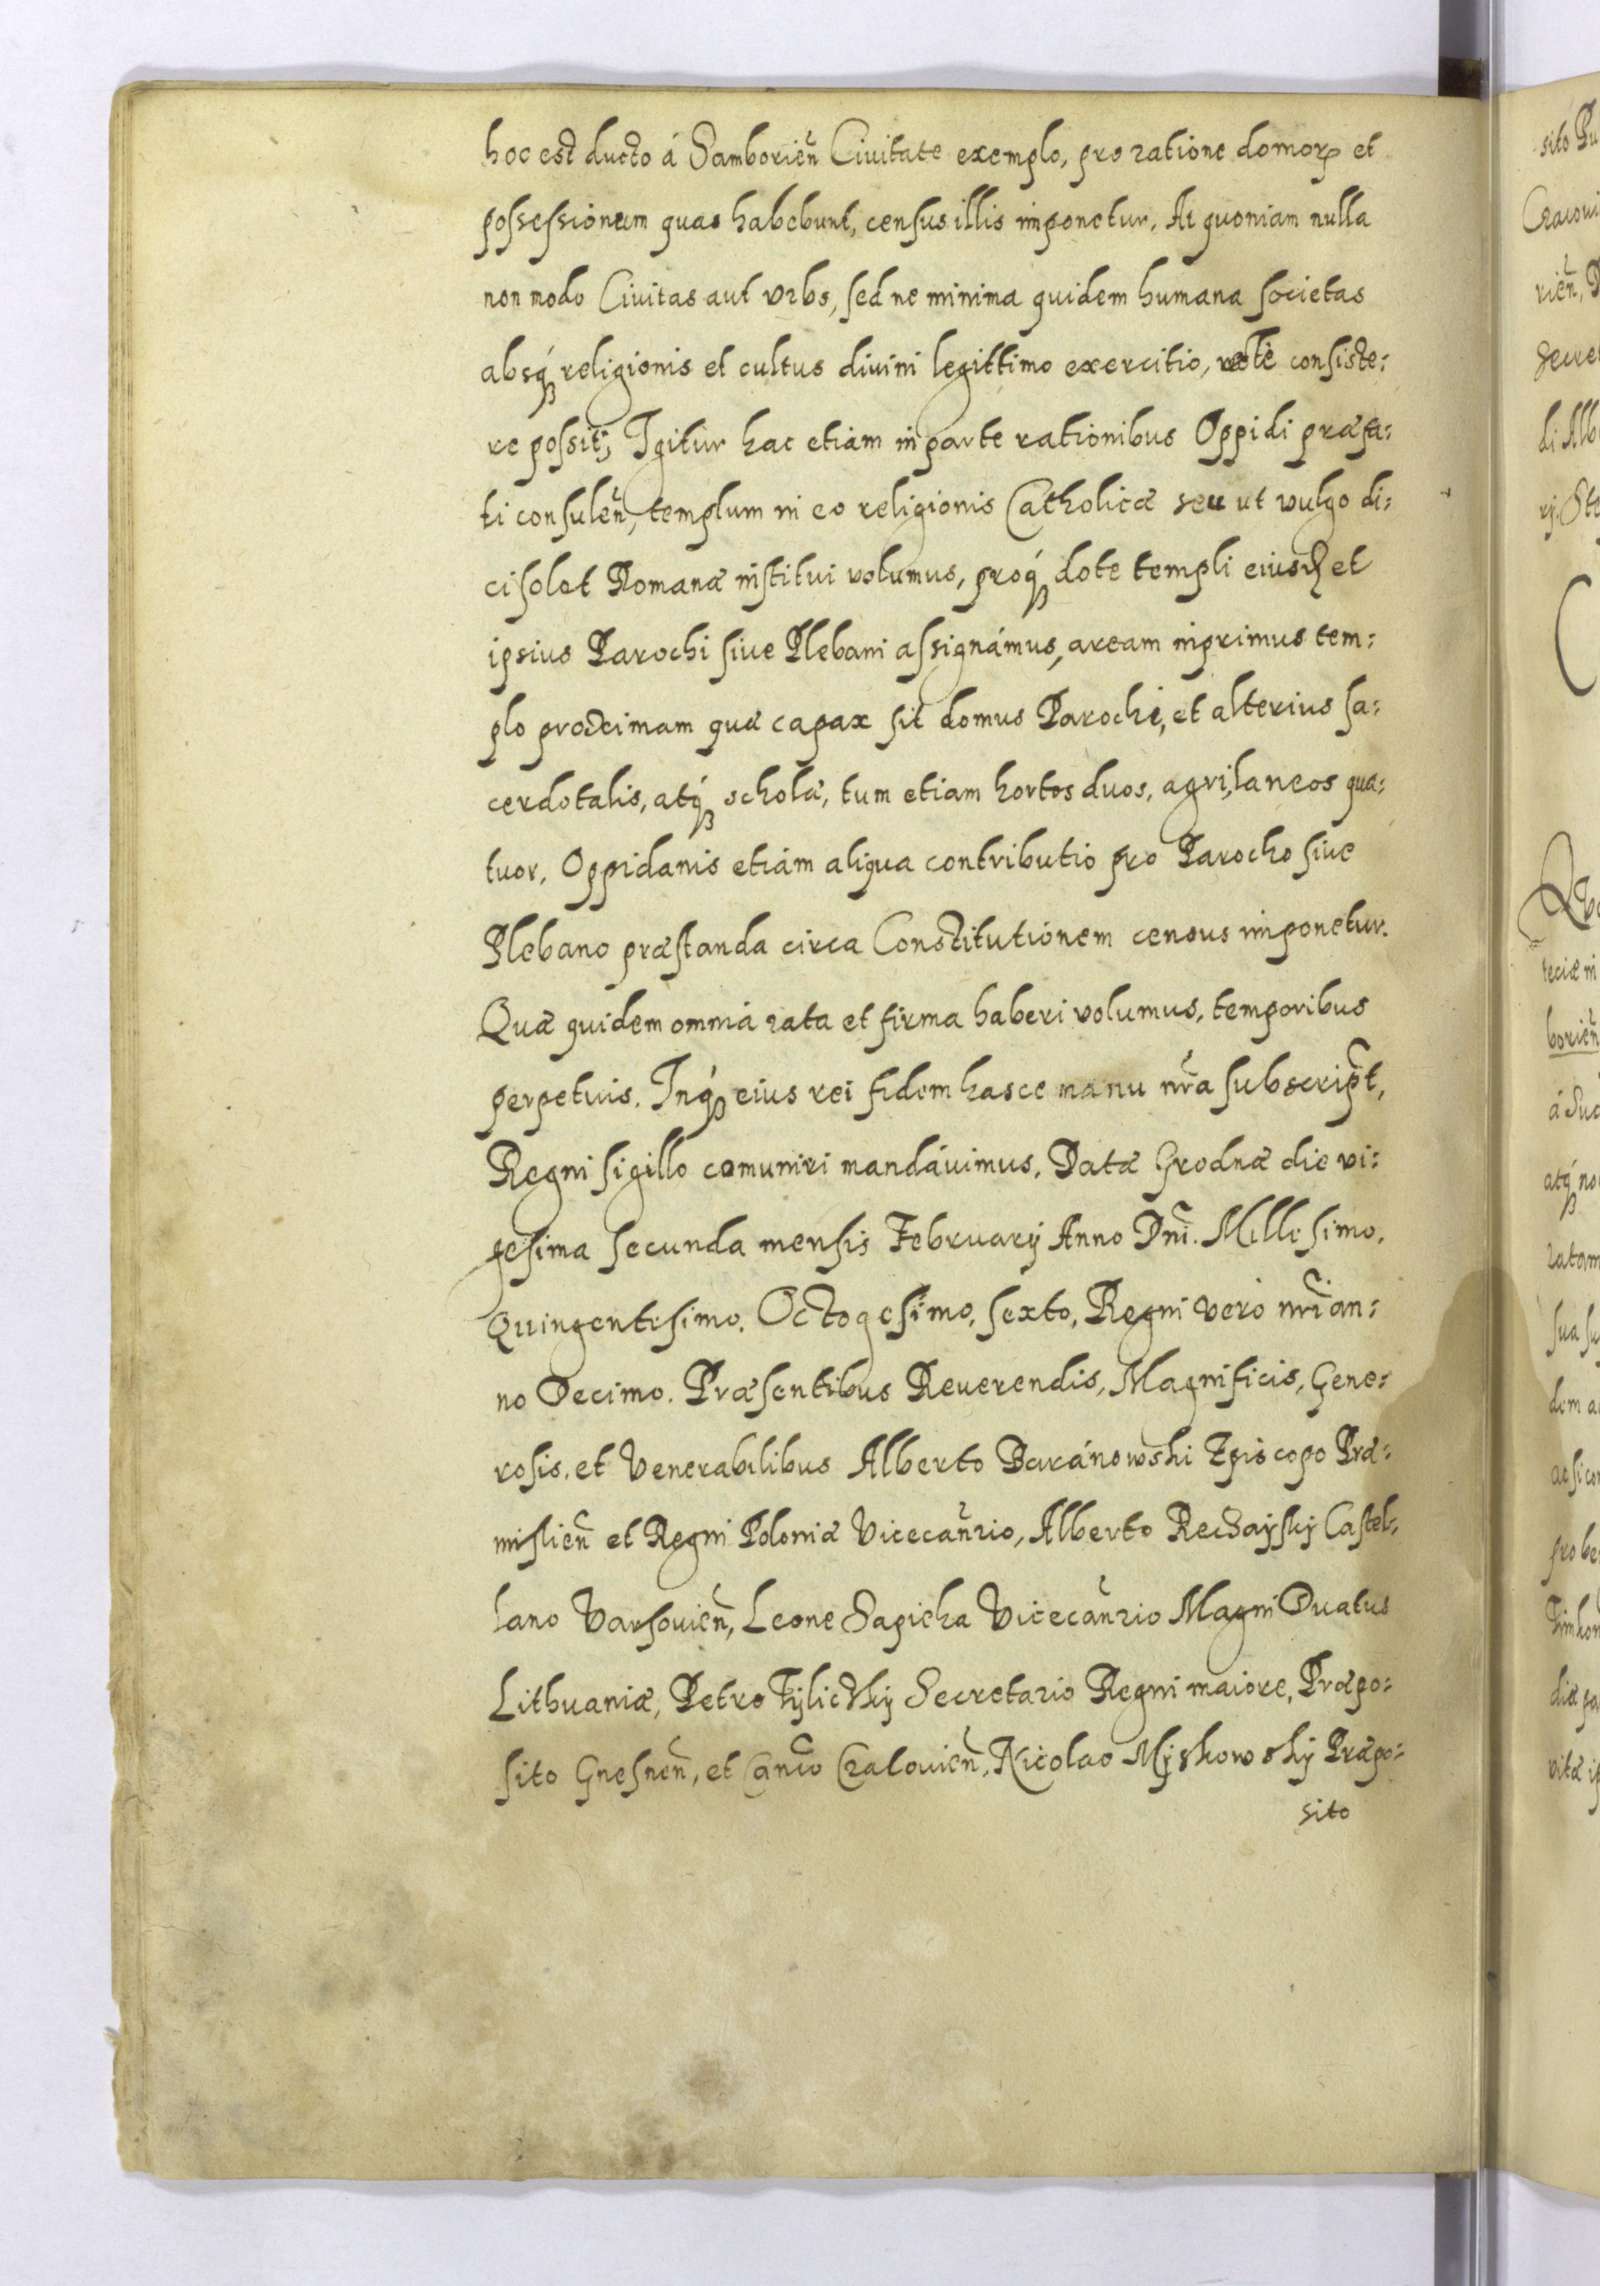 hoc est ducto á Samborieñ Ciuitate exemplo, pro ratione domoꝝ et
possessionum quas habebunt, census illis imponetur. At quoniam nulla
non modo Ciuitas aut vrbs, sed ne minima quidem humana societas
absq́ꝫ religionis et cultus diuini legittimo exercitio, recte consiste:
re possit; Igitur hac etiám in parte rationibus Oppidi præfa:
ti consuleñ, templum in eo religionis Catholicæ seu ut vulgo di:
ci solet Romanæ institui volumus, proq́ꝫ dote templi eiusđ et
ipsius Parochi siue Plebani assignámus, aream inprimus tem:
plo proximam quæ capax sit domus Parochi, et alterius sa:
cerdotalis, atq́ꝫ scholæ, tum etiam hortos duos, agri, laneos qua:
tuor. Oppidanis etiám aliqua contributio pro Parocho siue
Plebano præstanda circa Constitutionem census imponetur.
Quæ quidem omniá rata et firma haberi volumus, temporibus
perpetuis. Inq́ꝫ eius rei fidem hasce manu nr̃a subscript̃,
Regni sigillo comuniri mandáuimus. Datæ Grodnæ die vi:
gesima secunda mensis February Anno Dñi. Millesimo,
Quingentesimo. Octogesimo, sexto, Regni veró nr̃i an:
no Decimo. Præsentibus Reuerendis, Magnificis, Gene:
rosis. et Venerabilibus Alberto Baránowski Episcopo Præ:
mislieñ et Regni Poloniæ Vicecañrio, Alberto Reczaÿskÿ Castel:
lano Varsouieñ, Leone Sapieha Vicecañrio Magni Ducatus
Lithuaniæ, Petro Tÿlickÿ Secretario Regni maiore, Præpo:
sito Gnesneñ, et Cañco Cracouieñ, Nicolao Mÿskowskÿ Præpo:
sito